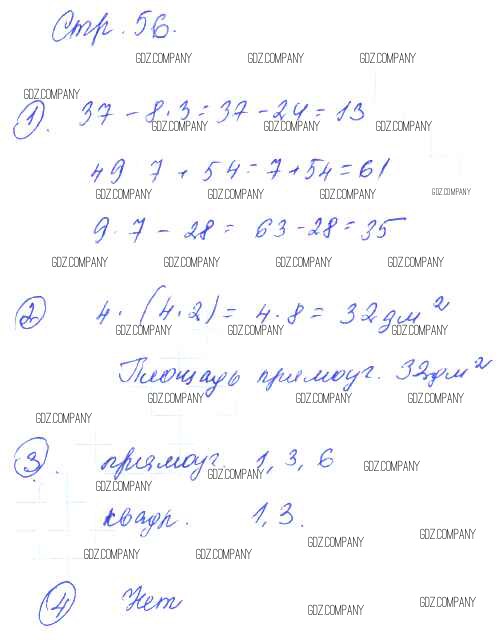 Стр. 56.
GDZ.COMPANY GDZ.COMPANY GDZ.COMPANY
GDZ.COMPANY
1). 37 - 8·3 = 37 - 24 = 13
GDZ.COMPANY GDZ.COMPANY GDZ.COMPANY
49 7 + 54 = 7 + 54 = 61
GDZ.COMPANY GDZ.COMPANY GDZ.COMPANY GDZ.COMPANY
9·7 - 28 = 63 - 28 = 35
GDZ.COMPANY GDZ.COMPANY GDZ.COMPANY GDZ.COMPANY
2 4·(4·2) = 4·8 = 32 дм²
GDZ.COMPANY GDZ.COMPANY GDZ.COMPANY
Площадь прямоуг. 32 дм²
GDZ.COMPANY GDZ.COMPANY GDZ.COMPANY
GDZ.COMPANY
3. прямоуг. 1, 3, 6
GDZ.COMPANY GDZ.COMPANY
GDZ.COMPANY
квадр. 1, 3.
GDZ.COMPANY GDZ.COMPANY GDZ.COMPANY GDZ.COMPANY
4 Нет
GDZ.COMPANY GDZ.COMPANY